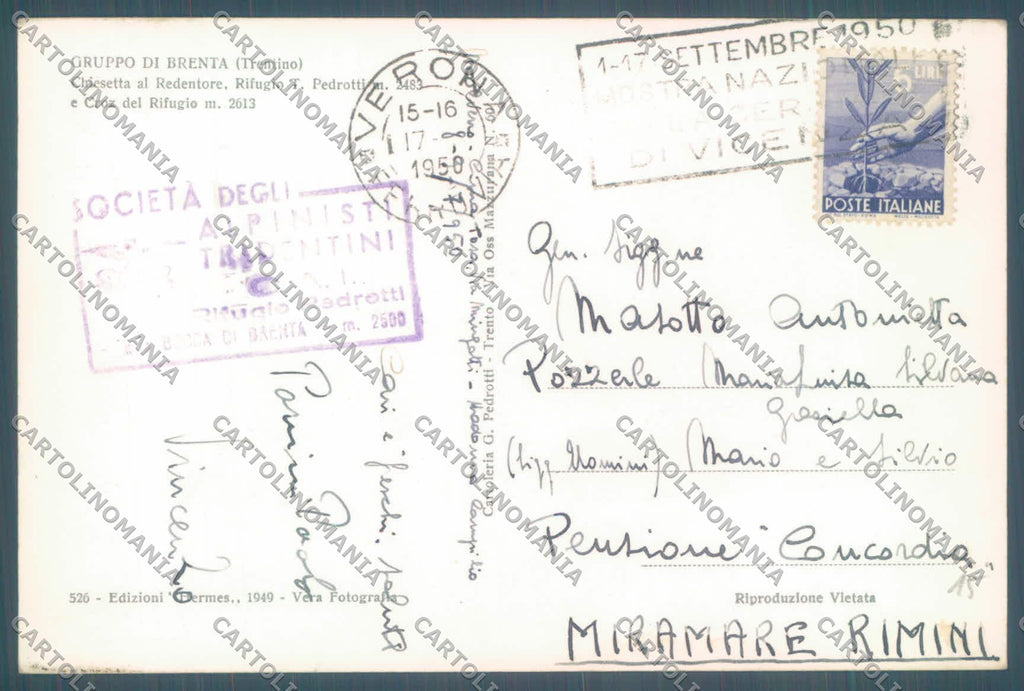 GRUPPO DI BRENTA (Trentino)
Chiesetta al Redentore, Rifugio T. Pedrotti m. 2483
e Croz del Rifugio m. 2613
VERONA
15-16
17-8
1950
1-17 SETTEMBRE 1950
MOSTRA NAZI
DI VICEN
5 LIRE
POSTE ITALIANE
SOCIETÀ DEGLI
ALPINISTI
TRIDENTINI
Rifugio Pedrotti
BOCCA DI BRENTA m. 2500
Cartoleria G. Pedrotti - Trento - Via Oss Mazzurana N.
Cari e freschi saluti
Paolo
Vincenzo
Gen. Sigg.ne
Masotto Antonietta
Pozzerle Maria Luisa Silvana
Graziella
(Sigg. Uomini) Mario e Silvio
Pensione "Concordia"
MIRAMARE RIMINI
15
526 - Edizioni "Hermes,, 1949 - Vera Fotografia
Riproduzione Vietata
CARTOLINOMANIA